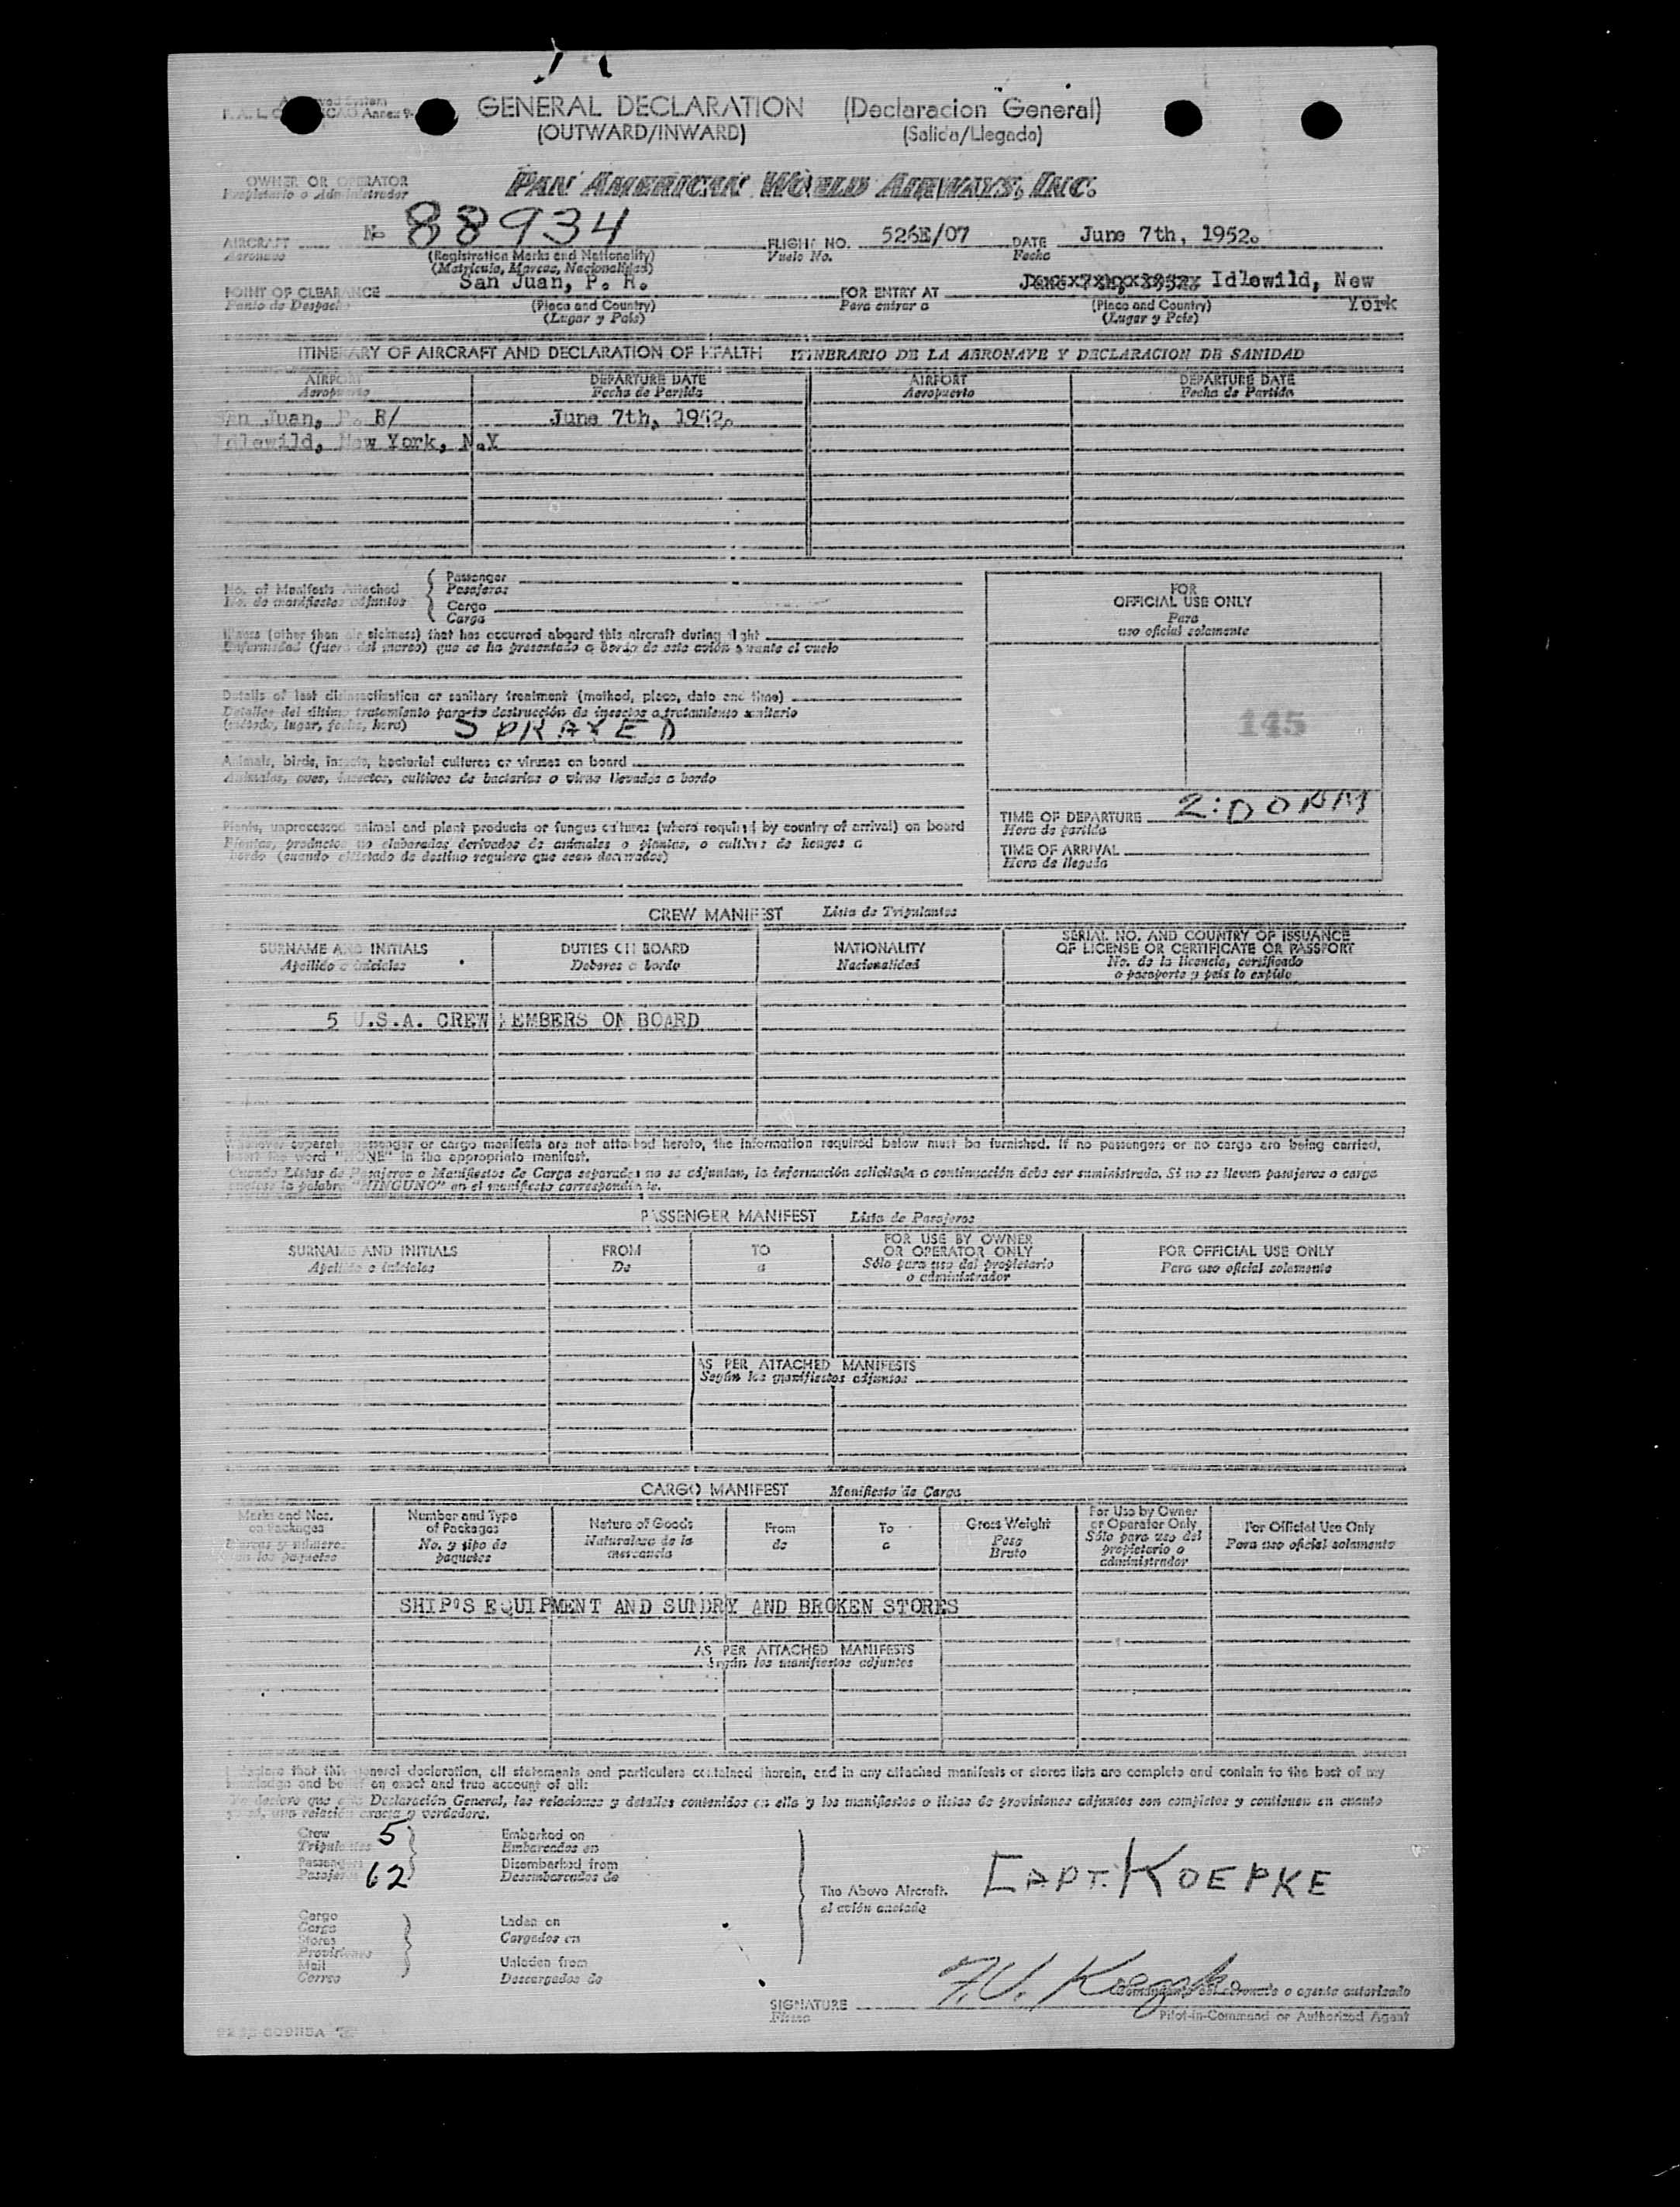 GENERAL DECLARATION (Declaracion General)
(OUTWARD/INWARD) (Salida/Llegada)
OWNER OR OPERATOR PAN AMERICAN WORLD AIRWAYS, INC.
Propietario o Administrador
AIRCRAFT N- 88934 FLIGHT NO. 526E/07 DATE June 7th, 1952.
Aeronave (Registration Marks and Nationality) Vuelo No. Fecha
(Matricula, Marcas, Nacionalidad)
POINT OF CLEARANCE San Juan, P. R. FOR ENTRY AT Idlewild, New
Punto de Despacho (Place and Country) Para entrar a (Place and Country) York
(Lugar y Pais) (Lugar y Pais)
ITINERARY OF AIRCRAFT AND DECLARATION OF HEALTH ITINERARIO DE LA AERONAVE Y DECLARACION DE SANIDAD
AIRPORT DEPARTURE DATE AIRPORT DEPARTURE DATE
Aeropuerto Fecha de Partida Aeropuerto Fecha de Partida
San Juan, P. R/ June 7th, 1952.
Idlewild, New York, N.Y
No. of Manifests Attached Passenger
No. de manifiestos adjuntos Pasajeros
Cargo
Carga
FOR
OFFICIAL USE ONLY
Para
uso oficial solamente
Illness (other than air sickness) that has occurred aboard this aircraft during flight
Enfermedad (fuera del mareo) que se ha presentado a bordo de este avión durante el vuelo
Details of last disinsectisation or sanitary treatment (method, place, date and time)
Detalles del último tratamiento para la destrucción de insectos o tratamiento sanitario
(método, lugar, fecha, hora) SPRAYED
145
Animals, birds, insects, bacterial cultures or viruses on board
Animales, aves, insectos, cultivos de bacterias o virus llevados a bordo
Plants, unprocessed animal and plant products or fungus cultures (where required by country of arrival) on board
Plantas, productos no elaborados derivados de animales o plantas, o cultivos de hongos a
bordo (cuando el estado de destino requiere que sean declarados)
TIME OF DEPARTURE 2:00 PM
Hora de partida
TIME OF ARRIVAL
Hora de llegada
CREW MANIFEST Lista de Tripulantes
SURNAME AND INITIALS DUTIES ON BOARD NATIONALITY SERIAL NO. AND COUNTRY OF ISSUANCE
OF LICENSE OR CERTIFICATE OR PASSPORT
Apellido e iniciales Deberes a bordo Nacionalidad No. de la licencia, certificado
o pasaporte y pais lo expide
5 U.S.A. CREW MEMBERS ON BOARD
Whenever separate passenger or cargo manifests are not attached hereto, the information required below must be furnished. If no passengers or no cargo are being carried,
insert the word "NONE" in the appropriate manifest.
Cuando Listas de Pasajeros o Manifiestos de Carga separados no se adjuntan, la información solicitada a continuación debe ser suministrada. Si no se llevan pasajeros o carga
la palabra "NINGUNO" en el manifiesto correspondiente.
PASSENGER MANIFEST Lista de Pasajeros
SURNAME AND INITIALS FROM TO FOR USE BY OWNER
OR OPERATOR ONLY FOR OFFICIAL USE ONLY
Apellido e iniciales De a Sólo para uso del propietario
o administrador Para uso oficial solamente
AS PER ATTACHED MANIFESTS
Según los manifiestos adjuntos
CARGO MANIFEST Manifiesto de Carga
Marks and Nos.
on Packages
Marcas y números
en los paquetes
Number and Type
of Packages
No. y tipo de
paquetes
Nature of Goods
Naturaleza de la
mercancia
From
de
To
a
Gross Weight
Peso
Bruto
For Use by Owner
or Operator Only
Sólo para uso del
propietario o
administrador
For Official Use Only
Para uso oficial solamente
SHIP'S EQUIPMENT AND SUNDRY AND BROKEN STORES
AS PER ATTACHED MANIFESTS
Según los manifiestos adjuntos
I declare that this general declaration, all statements and particulars contained therein, and in any attached manifests or stores lists are complete and contain to the best of my
knowledge and belief an exact and true account of all:
Yo declaro que esta Declaración General, las relaciones y detalles contenidos en ella y los manifiestos o listas de provisiones adjuntos son completos y contienen en cuanto
una relación exacta y verdadera.
Crew 5 Embarked on
Tripulantes Embarcados en
Passengers 62 Disembarked from
Pasajeros Desembarcados de
The Above Aircraft.
el avión anotado
CAPT. KOEPKE
Cargo
Carga
Stores
Provisiones
Mail
Correo
Laden on
Cargados en
Unladen from
Descargados de
SIGNATURE F.U. Koepke
Firma Comandante del aeronave o agente autorizado
Pilot-in-Command or Authorized Agent